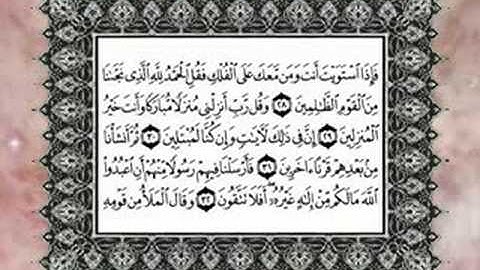 فَإِذَا ٱسْتَوَيْتَ أَنتَ وَمَن مَّعَكَ عَلَى ٱلْفُلْكِ فَقُلِ ٱلْحَمْدُ لِلَّهِ ٱلَّذِى نَجَّىٰنَا
مِنَ ٱلْقَوْمِ ٱلظَّـٰلِمِينَ ٢٨ وَقُل رَّبِّ أَنزِلْنِى مُنزَلًا مُّبَارَكًا وَأَنتَ خَيْرُ
ٱلْمُنزِلِينَ ٢٩ إِنَّ فِى ذَٰلِكَ لَـَٔايَـٰتٍ وَإِن كُنَّا لَمُبْتَلِينَ ٣٠ ثُمَّ أَنشَأْنَا
مِنۢ بَعْدِهِمْ قَرْنًا ءَاخَرِينَ ٣١ فَأَرْسَلْنَا فِيهِمْ رَسُولًا مِّنْهُمْ أَنِ ٱعْبُدُوا۟
ٱللَّهَ مَا لَكُم مِّنْ إِلَـٰهٍ غَيْرُهُۥٓ ۖ أَفَلَا تَتَّقُونَ ٣٢ وَقَالَ ٱلْمَلَأُ مِن قَوْمِهِ